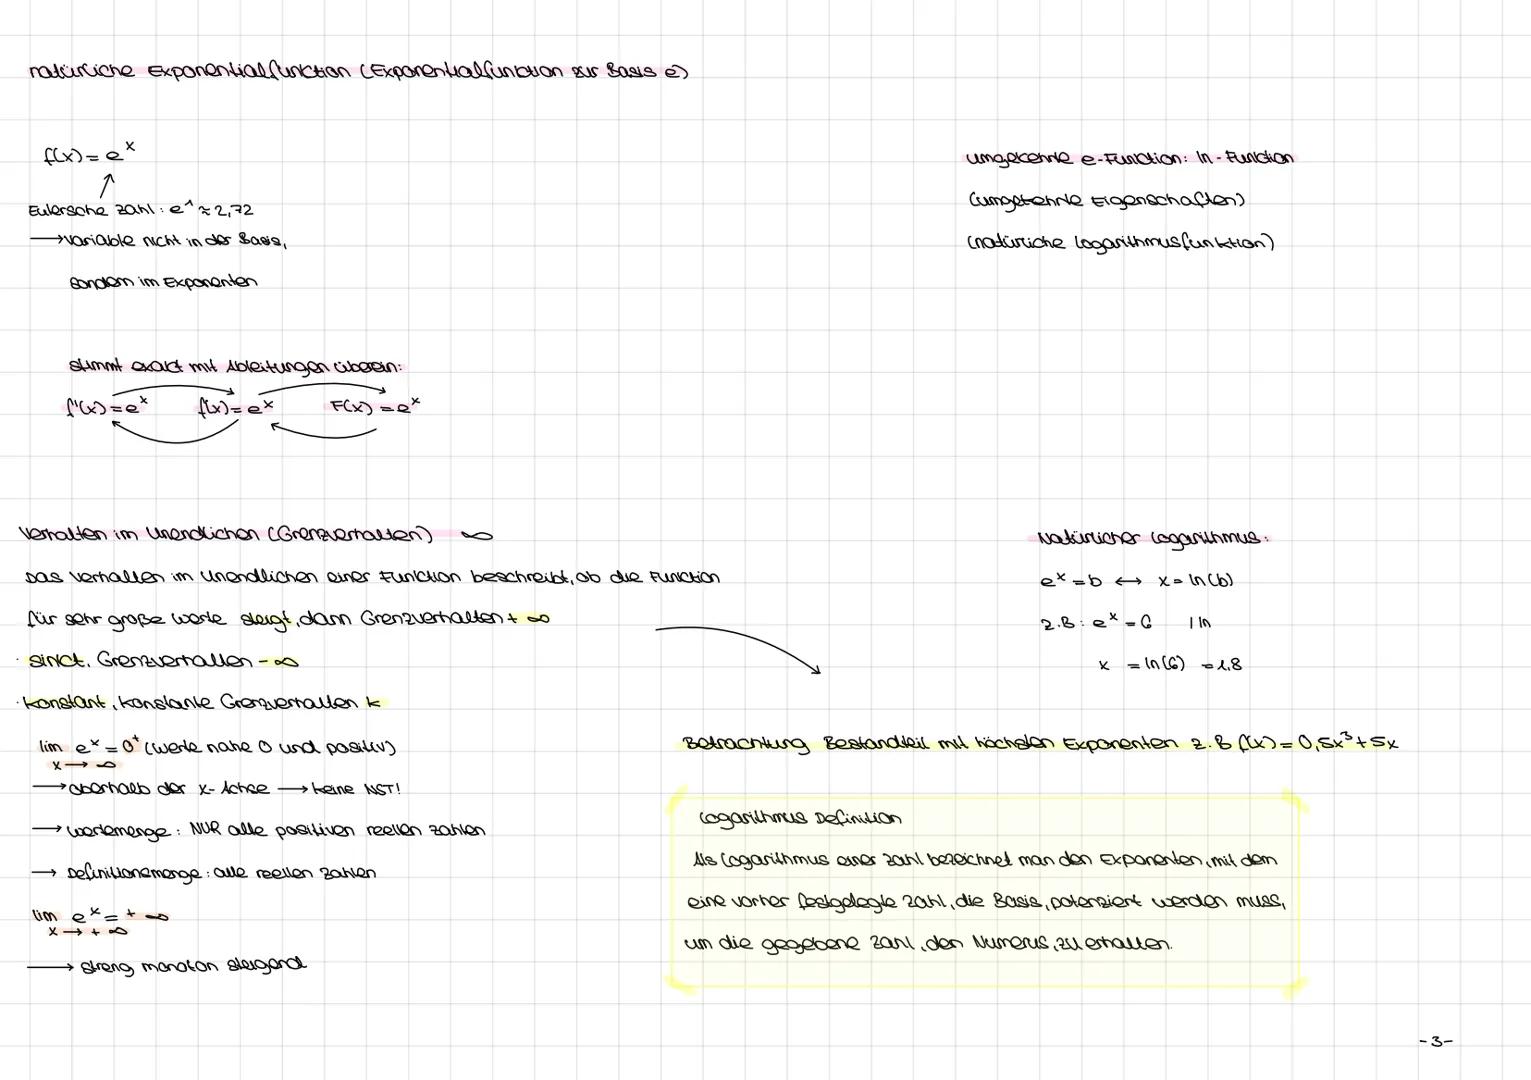 natürliche Exponentialfunktion (Exponentialfunktion zur Basis e)
f(x) = eˣ
Eulersche Zahl: e¹ ≈ 2,72
→ Variable nicht in der Basis,
sondern im Exponenten
umgekehrte e-Funktion: ln-Funktion
(umgekehrte Eigenschaften)
(natürliche Logarithmusfunktion)
stimmt exakt mit Ableitungen überein:
f'(x) = eˣ f(x) = eˣ F(x) = eˣ
Verhalten im Unendlichen (Grenzverhalten) ∞
Das Verhalten im Unendlichen einer Funktion beschreibt, ob die Funktion
für sehr große Werte steigt, dann Grenzverhalten + ∞
· sinkt, Grenzverhalten - ∞
· konstant, konstante Grenzverhalten k
lim eˣ = 0⁺ (Werte nahe 0 und positiv)
x → ∞
→ oberhalb der x-Achse → keine NST!
→ Wertemenge: NUR alle positiven reellen Zahlen
→ Definitionsmenge: alle reellen Zahlen
lim eˣ = + ∞
x → + ∞
→ streng monoton steigend
Natürlicher Logarithmus:
eˣ = b ↔ x = ln(b)
z.B: eˣ = 6 | ln
x = ln(6) = 1.8
Betrachtung Bestandteil mit höchsten Exponenten z.B f(x) = 0,5x³ + 5x
Logarithmus Definition
Als Logarithmus einer Zahl bezeichnet man den Exponenten, mit dem
eine vorher festgelegte Zahl, die Basis, potenziert werden muss,
um die gegebene Zahl, den Numerus, zu erhalten.
-3-